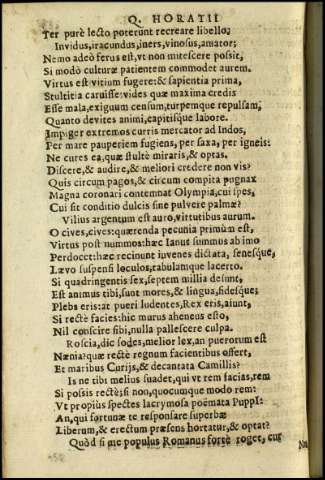 Q. HORATII
Ter purè lecto poterunt recreare libello:
Inuidus, iracundus, iners, vinosus, amator:
Nemo adeò ferus est, vt non mitescere possit,
Si modò culturæ patientem commodet aurem.
Virtus est vitium fugere: & sapientia prima,
Stultitia caruisse: vides quæ maxima credis
Esse mala, exiguum censum, turpemque repulsam,
Quanto deuites animi, capitisque labore.
Impiger extremos curris mercator ad Indos,
Per mare pauperiem fugiens, per saxa, per igneis:
Ne cures ea, quæ stultè miraris, & optas.
Discere, & audire, & meliori credere non vis?
Quis circum pagos, & circum compita pugnax
Magna coronari contemnat Olympia, cui spes,
Cui sit conditio dulcis sine puluere palmæ?
Vilius argentum est auro, virtutibus aurum.
O ciues, ciues: quærenda pecunia primùm est,
Virtus post nummos: hæc Ianus summus ab imo
Perdocet: hæc recinunt iuuenes dictata, senesque,
Læuo suspensi loculos, tabulamque lacerto.
Si quadringentis sex, septem millia desunt,
Est animus tibi, sunt mores, & lingua, fidesque;
Plebs eris: at pueri ludentes, Rex eris, aiunt,
Si rectè facies: hic murus aheneus esto,
Nil conscire sibi, nulla pallescere culpa.
Roscia, dic sodes, melior lex, an puerorum est
Nænia? quæ rectè regnum facientibus offert,
Et maribus Curijs, & decantata Camillis?
Is ne tibi melius suadet, qui vt rem facias, rem
Si possis rectè; si non, quocumque modo rem:
Vt propiùs spectes lacrymosa poëmata Puppi:
An, qui fortunæ te responsare superbæ
Liberum, & erectum præsens hortatur, & optat?
Quòd si me populus Romanus fortè roget, cur